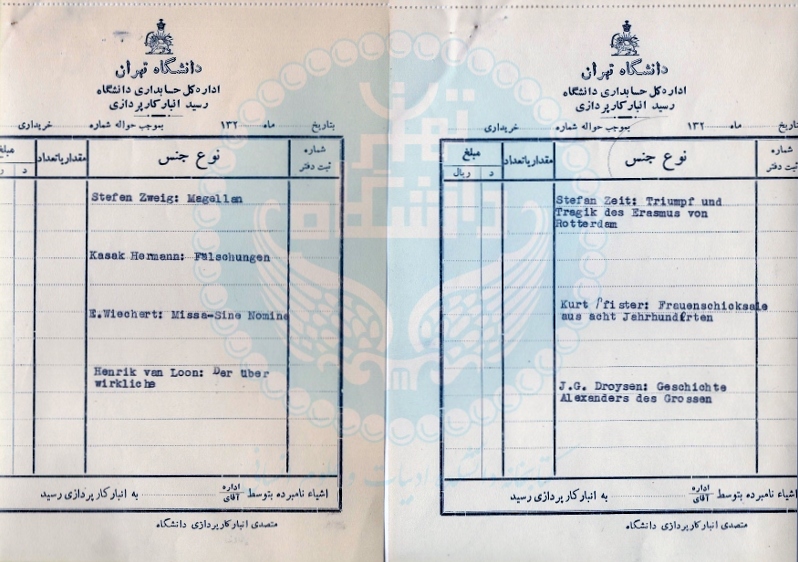 دانشگاه تهران
اداره کل حسابداری دانشگاه
رسید انبار کارپردازی
بتاریخ ماه ۱۳۲ بموجب حواله شماره خریداری
شماره ثبت دفتر
نوع جنس
مقدار یا تعداد
مبلغ
د
ر
Stefen Zweig: Magellan
Kasak Hermann: Fälschungen
E.Wiechert: Missa-Sine Nomine
Henrik van Loon: Der über
wirkliche
اشیاء نامبرده بتوسط اداره آقای به انبار کارپردازی رسید
متصدی انبار کارپردازی دانشگاه
دانشگاه تهران
اداره کل حسابداری دانشگاه
رسید انبار کارپردازی
بتاریخ ماه ۱۳۲ بموجب حواله شماره خریداری
شماره ثبت دفتر
نوع جنس
مقدار یا تعداد
مبلغ
د
ریال
Stefan Zeit: Triumpf und
Tragik des Erasmus von
Rotterdam
Kurt Pfister: Frauenschicksale
aus acht Jahrhunderten
J.G. Droysen: Geschichte
Alexanders des Grossen
اشیاء نامبرده بتوسط اداره آقای به انبار کارپردازی رسید
متصدی انبار کارپردازی دانشگاه
دانشگاه تهران